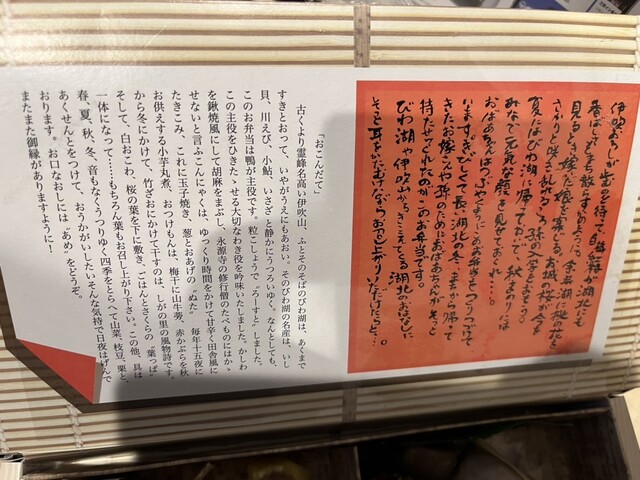 伊吹おろしが
見ると、嫁だ娘を
夏にはびわ湖に帰っておいで、秋まつりは
みなで元気な顔を見せておくれ・・・。
おばあちゃんはつぶやくようにこのお弁当をつくりつづけて
います。きびしくて長い湖北の冬、
きたお嫁さんや孫のためにおばあちゃんが
持たせてくれたのがこのお弁当です。
びわ湖や伊吹山からきこえてくる湖北のおはなしに
そっと耳をかたむけながらお召し上がりください・・・。
「おこんだて」
古くより霊峰名高い伊吹山、ふとそのそばのびわ湖は、あくまで
すきとおって、いやがうえにもあおい。そのびわ湖の名産は、いし
貝、川えび、小鮎、いさざと静かにうつろいゆく。なんとしても、
このお弁当は鴨が主役です。粒こしょうで、〝ろーすと〟しました。
この主役をひきたゝせる大切なわき役を吟味いたしました。かしわ
を鍬焼風にして胡麻をまぶし、永源寺の修行僧のたべものにはかゝ
せないと言ふこんにゃくは、ゆっくり時間をかけて甘辛く田舎風に
たきこみ、これに玉子焼き、葱とおあげの〝ぬた〟　毎年十五夜に
お供えする小芋丸煮、おつけもんは、梅干に山牛蒡、赤かぶらを秋
から冬にかけて、竹ざおにかけて干すのは、しがの里の風物詩です。
そして、白おこわ、桜の葉を下に敷き、ごはんとさくらの〝葉っぱ〟
一体になって……もちろん葉もお召し上り下さい。この他、具は
春、夏、秋、冬、音もなくうつりゆく四季をとらへて山菜、枝豆、栗と、
あくせんとをつけて、おうかがいしたいそんな気持で日夜はげんで
おります。お口なおしには〝あめ〟をどうぞ。
またまた御縁がありますように！